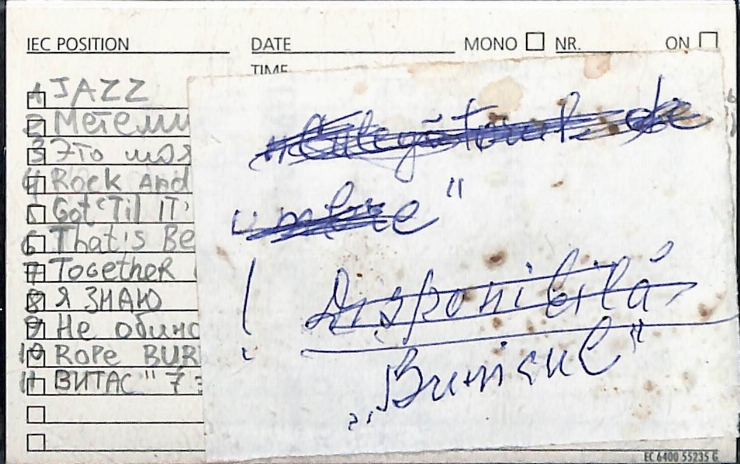 IEC POSITION DATE MONO NR. ON
TIME
1 JAZZ
2 Метели
3 Это моя
4 Rock And
5 Got 'Til IT'
6 That's Be
7 Together
8 Я ЗНАЮ
9 Не
10 ROPE BUR
11 ВИТАС" 7 э
„Culegătorul de
umbre"
! Disponibilă
„Bunicul"
EC 6400 55235 G